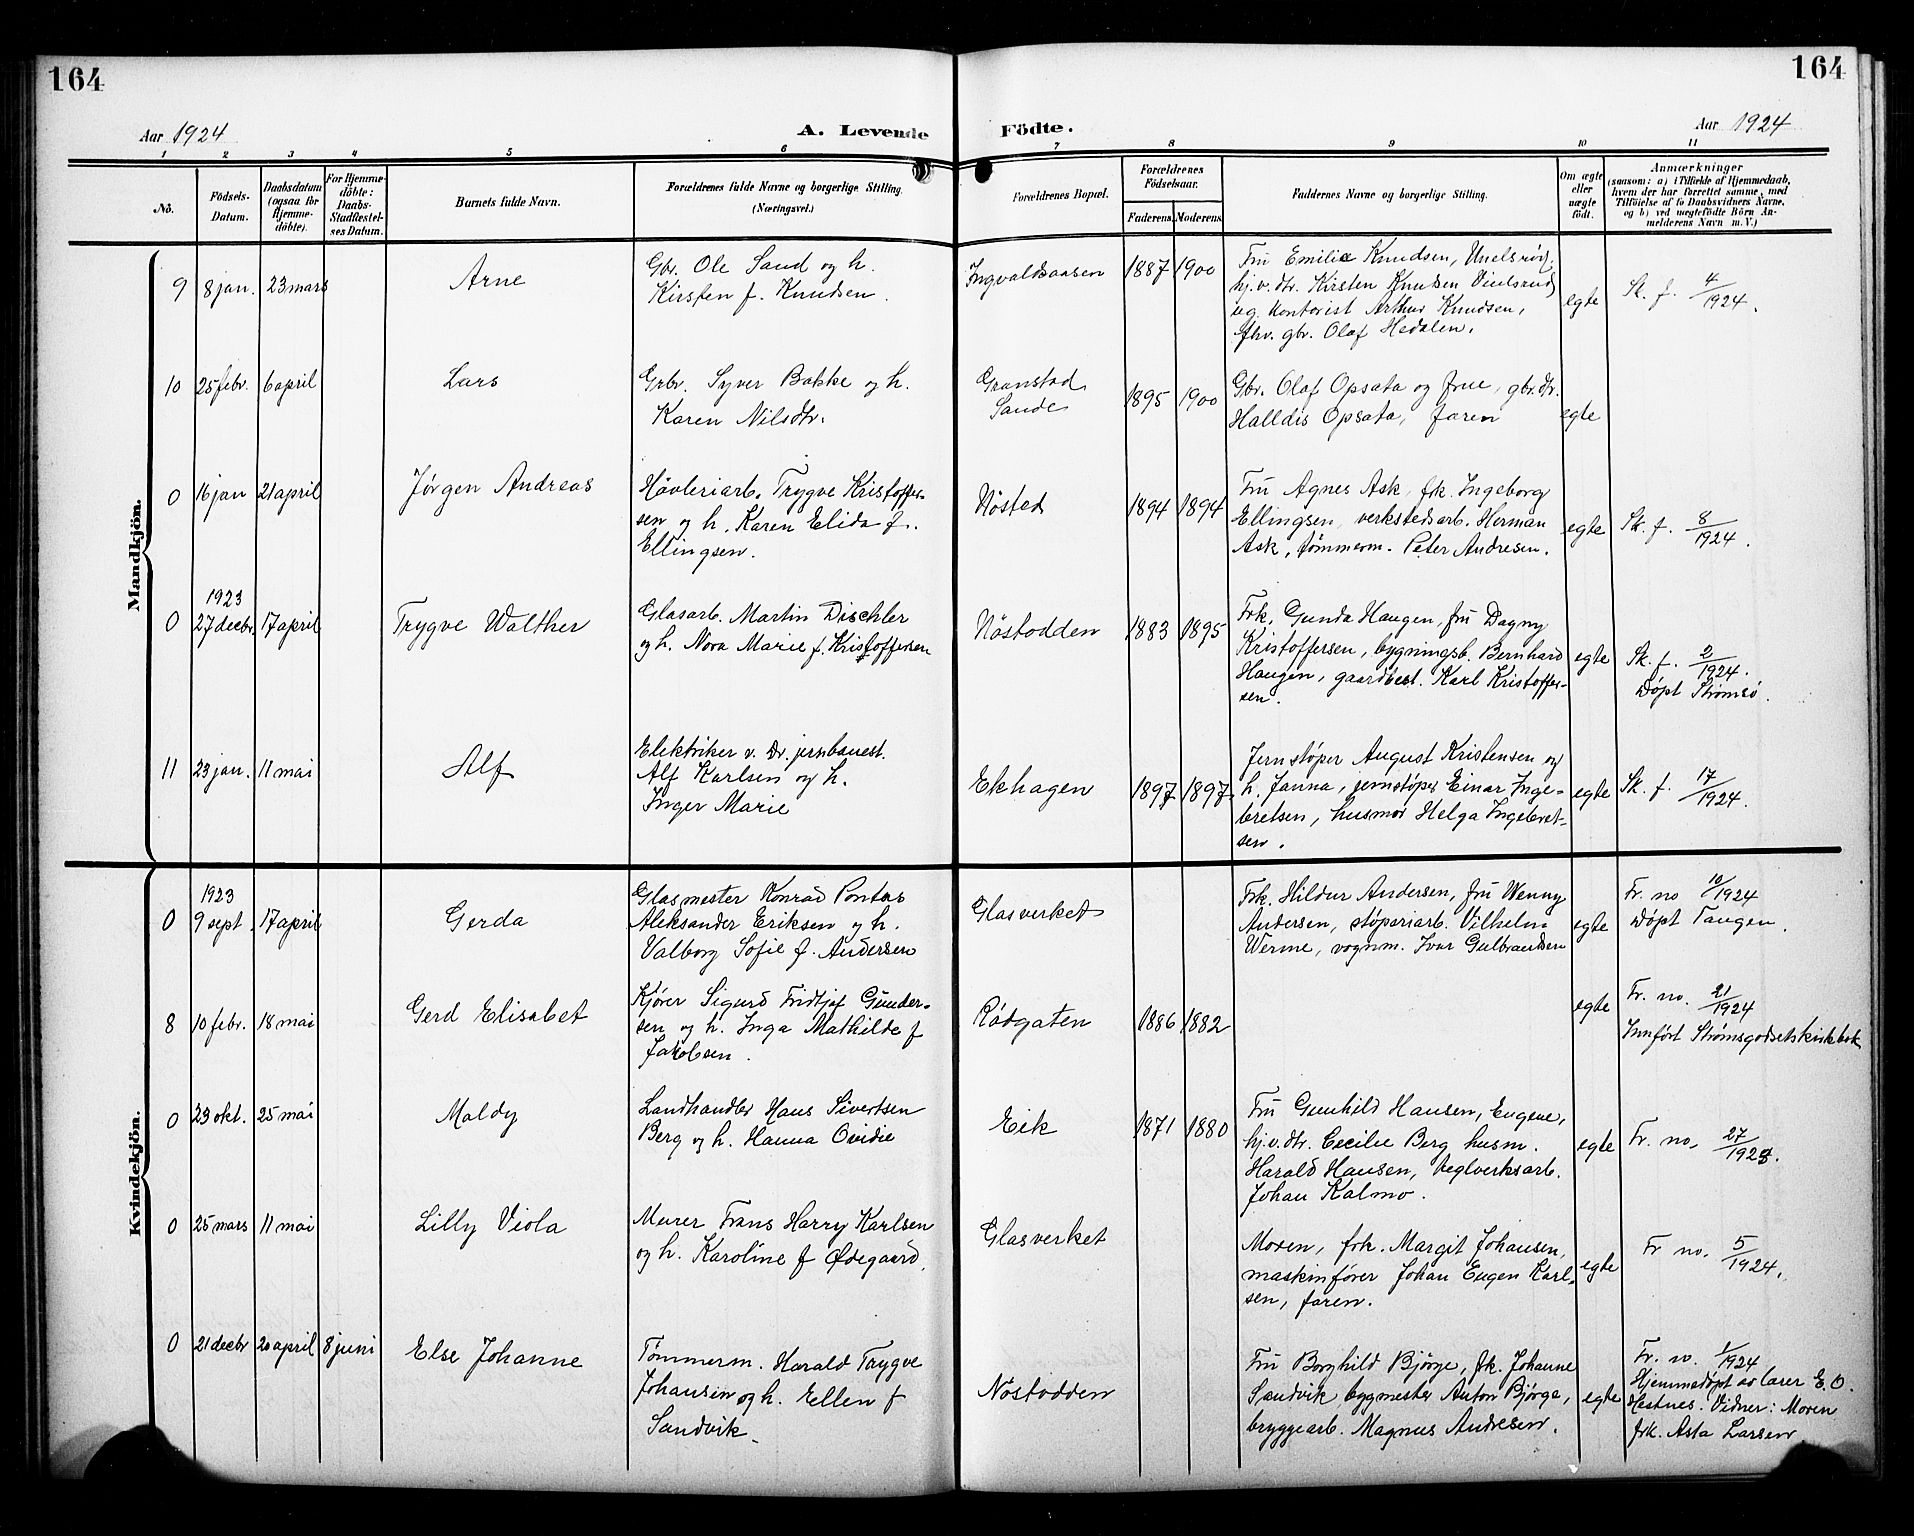 164
164
Aar 1924
A. Levende Födte.
Aar 1924
1 2 3 4 5 6 7 8 9 10 11
Nô.
Födsels-
Datum.
Daabsdatum
(ogsaa for
Hjemme-
döbte).
For Hjemme-
döbte:
Daabs-
Stadfæstel-
ses Datum.
Barnets fulde Navn.
Forældrenes fulde Navne og borgerlige Stilling.
(Næringsvei.)
Forældrenes Bopæl.
Forældrenes
Födselsaar.
Faderens. Moderens.
Faddernes Navne og borgerlige Stilling.
Om ægte
eller
uægte
født.
Anmærkninger
(saasom: a) i Tilfælde af Hjemmedaab,
hvem der har forrettet samme, med
Tilföielse af to Daabsvidners Navne,
og b) ved uægtefödte Börn An-
melderens Navn m. V.)
Mandkjön.
9 8 jan. 23 mars
Arne
Gbr. Ole Sand og h.
Kirsten f. Knudsen.
Ingvaldsaasen
1887 1900
Fru Emilie Knudsen,
hj.v.dtr. Kirsten Knutsen
ug. kontorist Arthur Knudsen,
fhv. gbr. Olaf Hedalen.
egte
Sk. f. 4/1924.
10 25 febr. 6 april
Lars
Grbr. Syver Bakke og h.
Karen Nilsdtr.
Granstad
Sande
1895 1900
Gbr. Olaf Opsata og frue, gbr.dtr.
Halldis Opsata, faren
egte
0 16 jan 21 april
Jørgen Andreas
Høvleriarb. Trygve Kristoffer-
sen og h. Karen Elida f.
Ellingsen.
Nøsted
1894 1894
Fru Agnes Ask, frk. Ingeborg
Ellingsen, verkstedsarb. Herman
Ask, tømmerm. Peter Andresen.
egte
Sk. f. 8/1924.
1923
0 27 decbr. 17 april
Trygve Walther
Glasarb. Martin Dischler
og h. Nora Marie f. Kristoffersen
Nøstodden
1883 1895
Frk. Gunda Haugen, fru Dagny
Kristoffersen, bygningsb. Bernhard
Haugen, gaardbest. Karl Kristoffer-
sen.
egte
Sk. f. 2/1924.
Døpt Strømsø.
11 23 jan. 11 mai
Alf
Elektriker v. Dr. jernbanest.
Alf Karlsen og h.
Inger Marie
Ekhagen
1897 1897
Jernstøper August Kristensen og
h. Janna, jernstøper Einar Inge-
bretsen, husmor Helga Ingebret-
sen.
egte
Sk. f. 17/1924.
Kvindekjön.
1923
0 9 sept. 17 april
Gerda
Glasmester Konrad Pontus
Aleksander Eriksen og h.
Valborg Sofie f. Andersen
Glasverket
Frk. Hildur Andersen, fru Wenny
Andersen, støperiarb. Vilhelm
Werme, vognm. Ivar Gulbrandsen
egte
Fr. no 10/1924
Døpt Tangen.
8 10 febr. 18 mai
Gerd Elisabet
Kjører Sigurd Fridtjof Gunder-
sen og h. Inga Mathilde f
Jakobsen.
Rødgaten
1886 1882
egte
Fr. no. 21/1924
Innført Strømsgodsets kirkbok
0 23 okt. 25 mai
Maldy
Landhandler Hans Sivertsen
Berg og h. Hanna Ovidie
Eik
1871 1880
Fru Gunhild Hansen, Eugene,
hj.v.dtr. Cecilie Berg husm.
Harald Hansen, teglverksarb.
Johan Kalmo.
egte
Fr. no. 27/1923.
0 25 mars 11 mai
Lilly Viola
Murer Frans Harry Karlsen
og h. Karoline f Ødegaard.
Glasverket
Moren, frk. Margit Johansen,
maskinfører Johan Eugen Karl-
sen, faren.
egte
Fr no. 5/1924.
0 21 decbr 20 april 8 juni
Else Johanne
Tømmerm. Harald Trygve
Johansen og h. Ellen f
Sandvik
Nøstodden
Fru Borghild Bjørge, frk. Johanne
Sandvik, bygmester Anton Bjørge,
bryggearb. Magnus Andresen.
egte
Fr. no. 1/1924
Hjemmedøpt av lærer E. O.
Hestnes. Vidner: Moren
frk. Asta Larsen